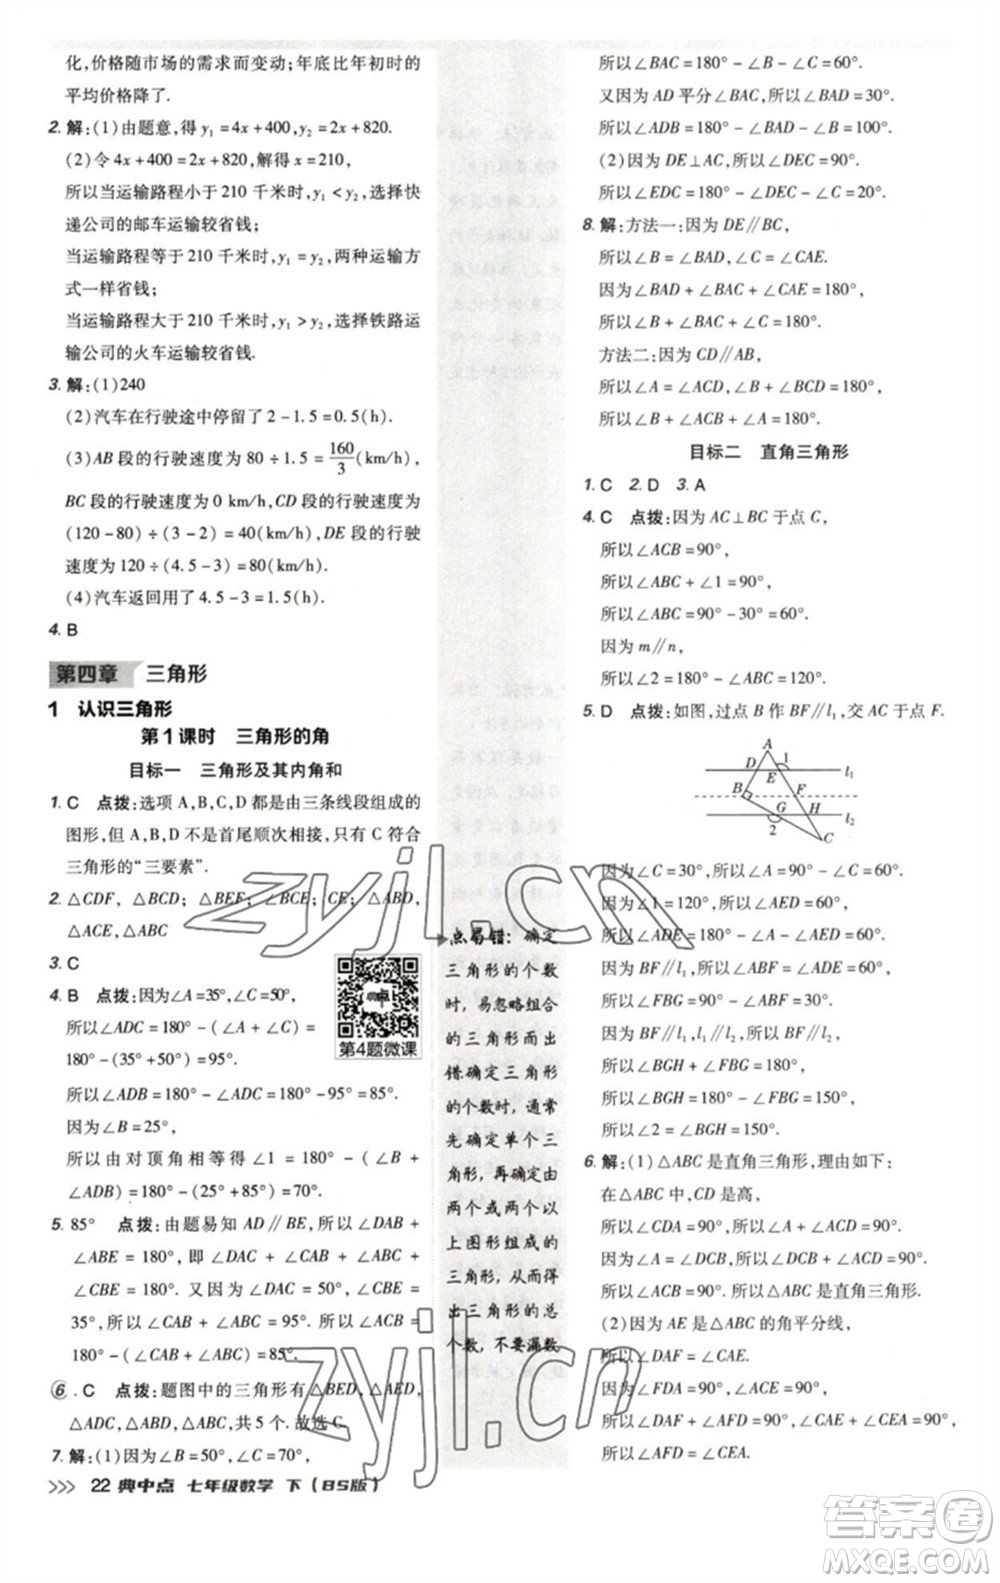 化,价格随市场的需求而变动;年底比年初时的
平均价格降了.
2. 解:(1)由题意,得 y₁=4x+400,y₂=2x+820.
(2)令 4x+400=2x+820,解得 x=210,
所以当运输路程小于 210 千米时,y₁<y₂,选择快
递公司的邮车运输较省钱;
当运输路程等于 210 千米时,y₁=y₂,两种运输方
式一样省钱;
当运输路程大于 210 千米时,y₁>y₂,选择铁路运
输公司的火车运输较省钱.
3. 解:(1)240
(2)汽车在行驶途中停留了 2-1.5=0.5(h).
(3)AB 段的行驶速度为 80÷1.5=160/3(km/h),
BC 段的行驶速度为 0 km/h,CD 段的行驶速度为
(120-80)÷(3-2)=40(km/h),DE 段的行驶
速度为 120÷(4.5-3)=80(km/h).
(4)汽车返回用了 4.5-3=1.5(h).
4. B
第四章 三角形
1 认识三角形
第1课时 三角形的角
目标一 三角形及其内角和
1. C 点拨:选项 A,B,C,D 都是由三条线段组成的
图形,但 A,B,D 不是首尾顺次相接,只有 C 符合
三角形的“三要素”.
2. △CDF,△BCD;△BEF;△BCF,△BCD,
△ACE,△ABC
3. C
4. B 点拨:因为∠A=35°,∠C=50°,
所以∠ADC=180°-(∠A+∠C)=
180°-(35°+50°)=95°.
第4题微课
所以∠ADB=180°-∠ADC=180°-95°=85°.
因为∠B=25°,
所以由对顶角相等得∠1=180°-(∠B+
∠ADB)=180°-(25°+85°)=70°.
5. 85° 点拨:由题易知 AD∥BE,所以∠DAB+
∠ABE=180°,即∠DAC+∠CAB+∠ABC+
∠CBE=180°.又因为∠DAC=50°,∠CBE=
35°,所以∠CAB+∠ABC=95°,所以∠ACB=
180°-(∠CAB+∠ABC)=85°.
6. C 点拨:题图中的三角形有△BED,△AED,
△ADC,△ABD,△ABC,共 5 个.故选 C.
7. 解:(1)因为∠B=50°,∠C=70°,
>>> 22 典中点 七年级数学 下(BS版)
点易错:确定
三角形的个数
时,易忽略组合
的三角形而出
错.确定三角形
的个数时,通常
先确定单个三
角形,再确定由
两个或两个以
上图形组成的
三角形,从而得
出三角形的总
个数,不要漏数
所以∠BAC=180°-∠B-∠C=60°.
又因为 AD 平分∠BAC,所以∠BAD=30°.
所以∠ADB=180°-∠B-∠BAD=100°.
(2)因为 DE⊥AC,所以∠DEC=90°.
所以∠EDC=180°-∠DEC-∠C=20°.
8. 解:方法一:因为 DE∥BC,
所以∠B=∠BAD,∠C=∠CAE.
因为∠BAD+∠BAC+∠CAE=180°,
所以∠B+∠BAC+∠C=180°.
方法二:因为 CD∥AB,
所以∠A=∠ACD,∠B+∠BCD=180°,
所以∠B+∠ACB+∠A=180°.
目标二 直角三角形
1. C 2. D 3. A
4. C 点拨:因为 AC⊥BC 于点 C,
所以∠ACB=90°,
所以∠ABC+∠1=90°,
所以∠ABC=90°-30°=60°.
因为 m∥n,
所以∠2=180°-∠ABC=120°.
5. D 点拨:如图,过点 B 作 BF∥l₁,交 AC 于点 F.
A
D 1
E l₁
B F
G H
2 l₂
C
因为∠C=30°,所以∠A=90°-∠C=60°.
因为∠1=∠AED,所以∠AED=60°,
所以∠ADE=180°-∠A-∠AED=60°.
因为 BF∥l₁,所以∠ABF=∠ADE=60°,
所以∠FBG=90°-∠ABF=30°.
因为 BF∥l₁,l₁∥l₂,所以 BF∥l₂,
所以∠BGH+∠FBG=180°,
所以∠BGH=180°-∠FBG=150°,
所以∠2=∠BGH=150°.
6. 解:(1)△ABC 是直角三角形,理由如下:
在△ABC 中,CD 是高,
所以∠CDA=90°,所以∠A+∠ACD=90°.
因为∠A=∠DCB,所以∠DCB+∠ACD=90°,
所以∠ACB=90°,所以△ABC 是直角三角形.
(2)因为 AE 是△ABC 的角平分线,
所以∠DAF=∠CAE.
因为∠FDA=90°,∠ACE=90°,
所以∠DAF+∠AFD=90°,∠CAE+∠CEA=90°,
所以∠AFD=∠CEA.
zyjl.cn
zyjl.cn
答案圈
MXQE.COM